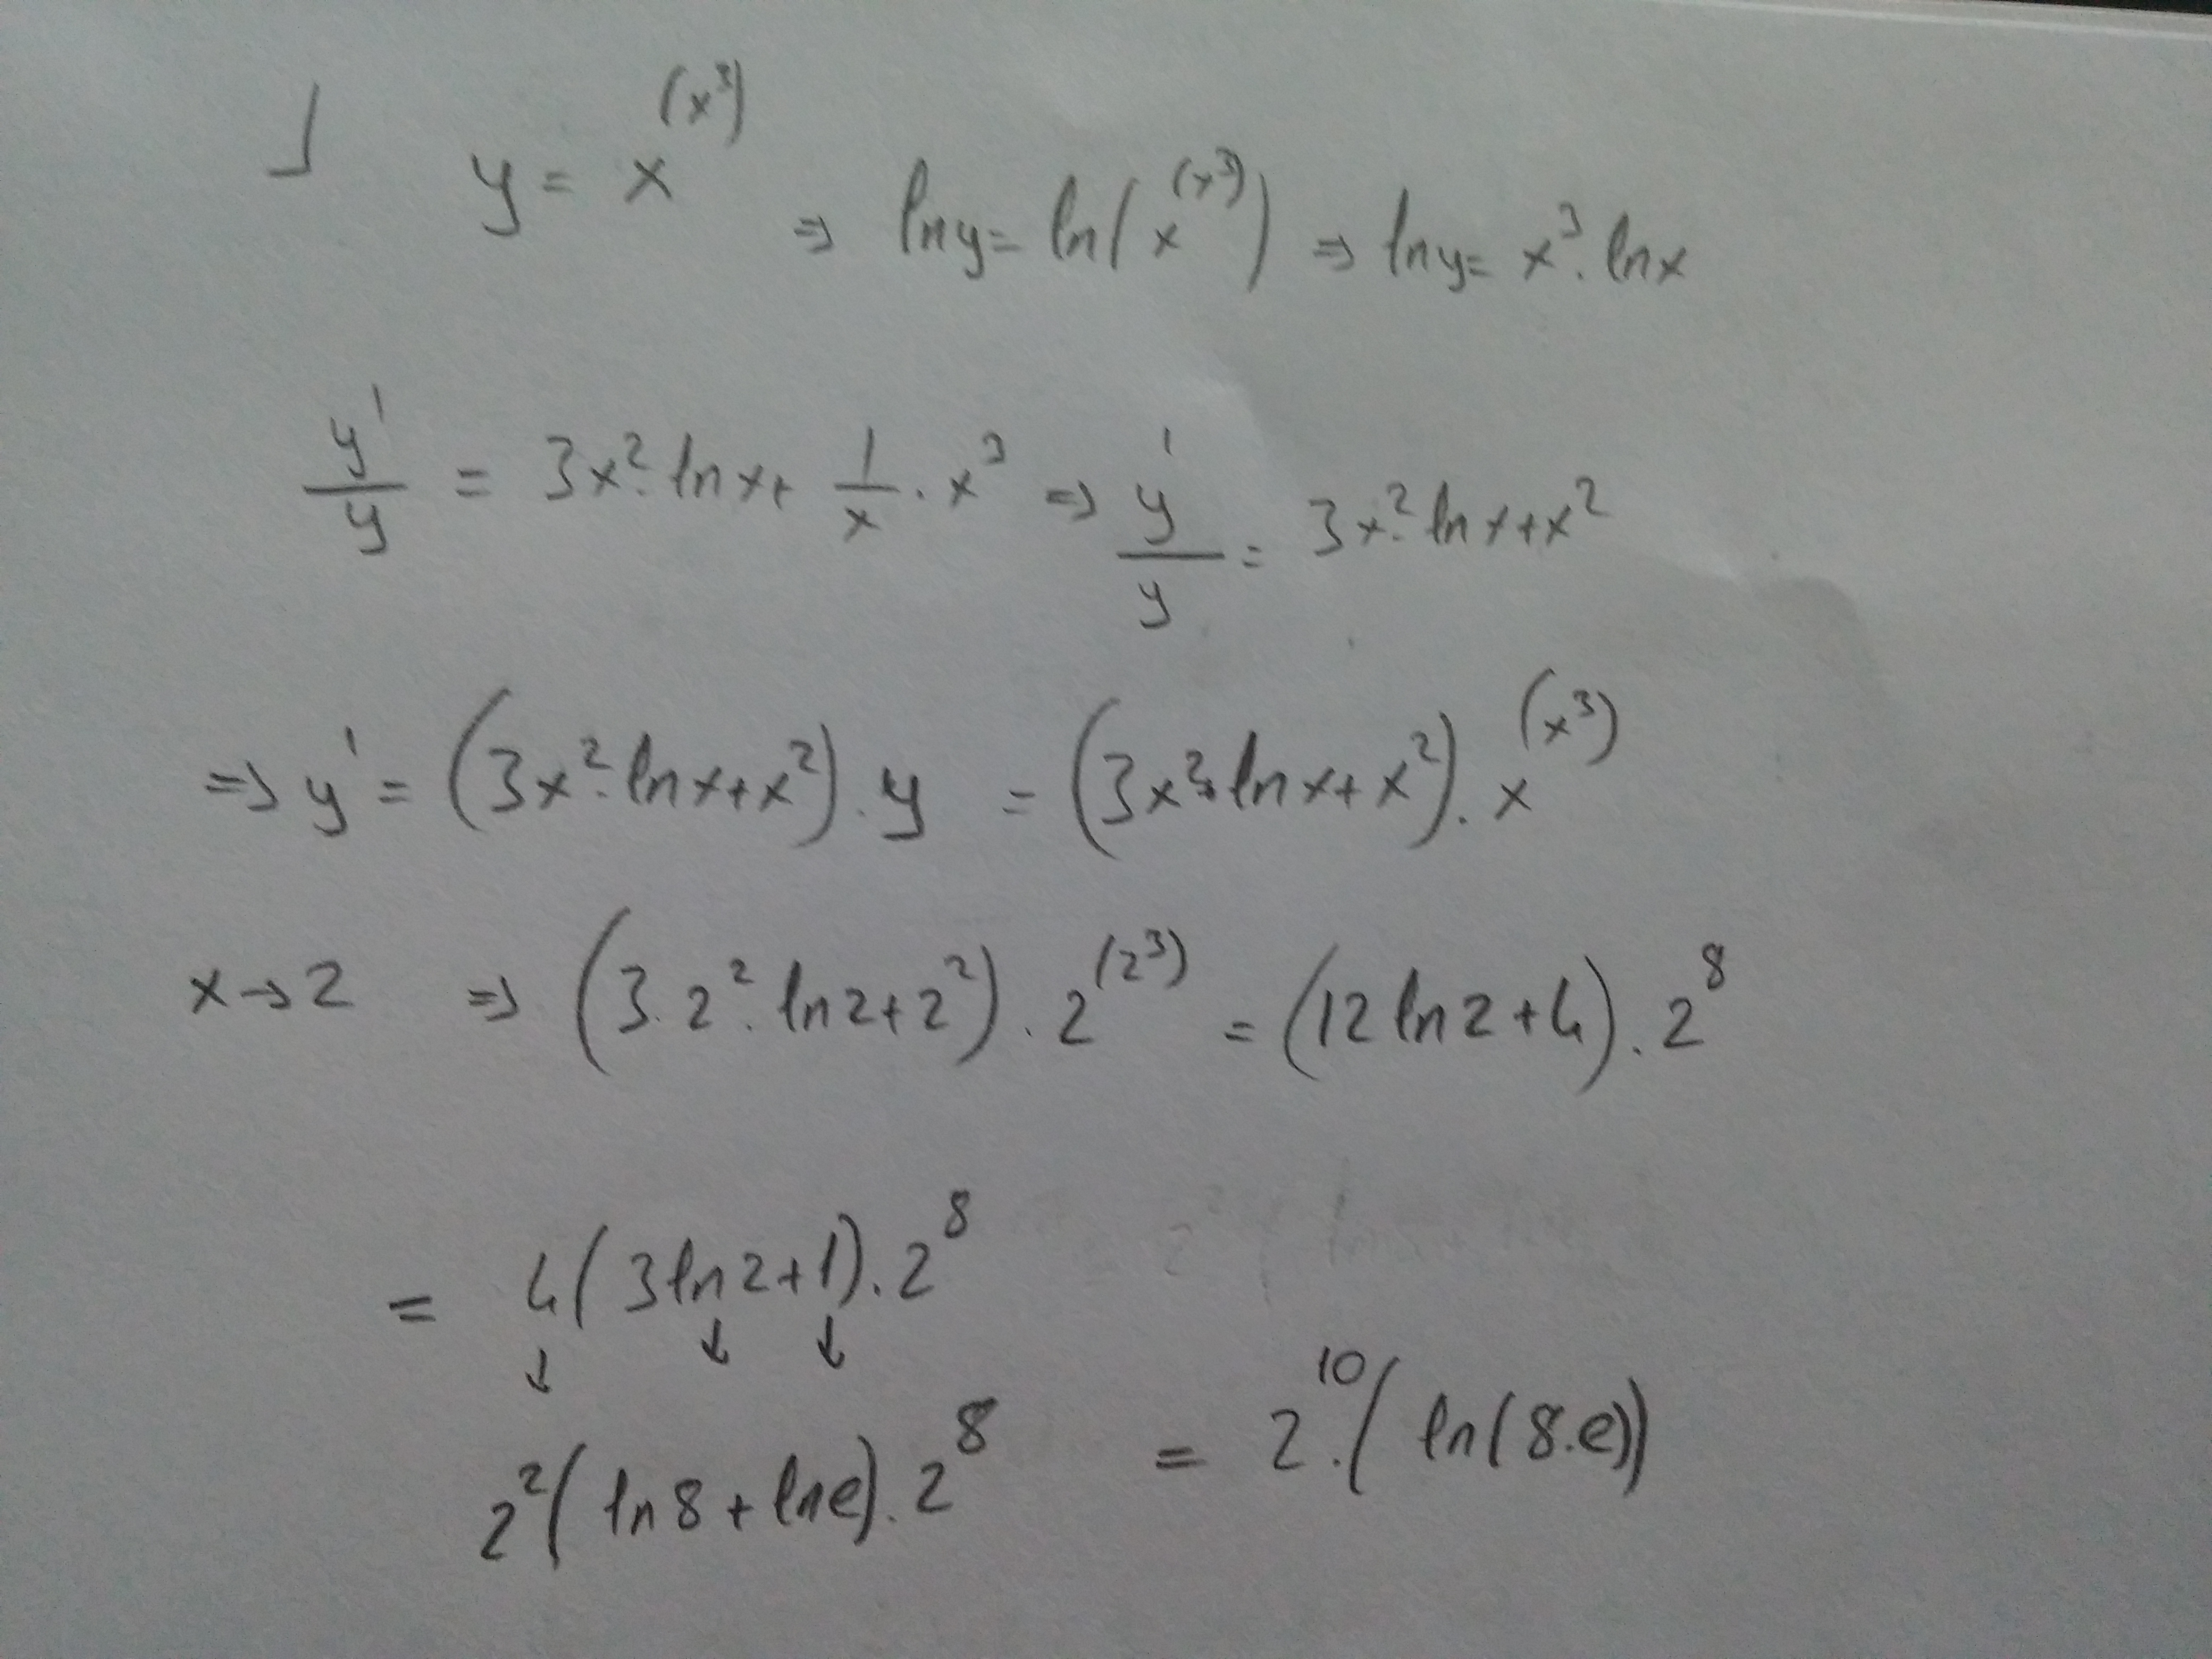 1 y = x^(x^3) ⇒ lny = ln(x^(x^3)) ⇒ lny = x^3 . lnx
y'/y = 3x^2 . lnx + 1/x . x^3 ⇒ y'/y = 3x^2 . lnx + x^2
⇒ y' = (3x^2 . lnx + x^2) . y = (3x^2 . lnx + x^2) . x^(x^3)
x → 2 ⇒ (3.2^2 . ln2 + 2^2) . 2^(2^3) = (12 ln2 + 4) . 2^8
= 4(3ln2 + 1) . 2^8
↓ ↓ ↓
2^2(ln8 + lne) . 2^8 = 2^10 . (ln(8.e))